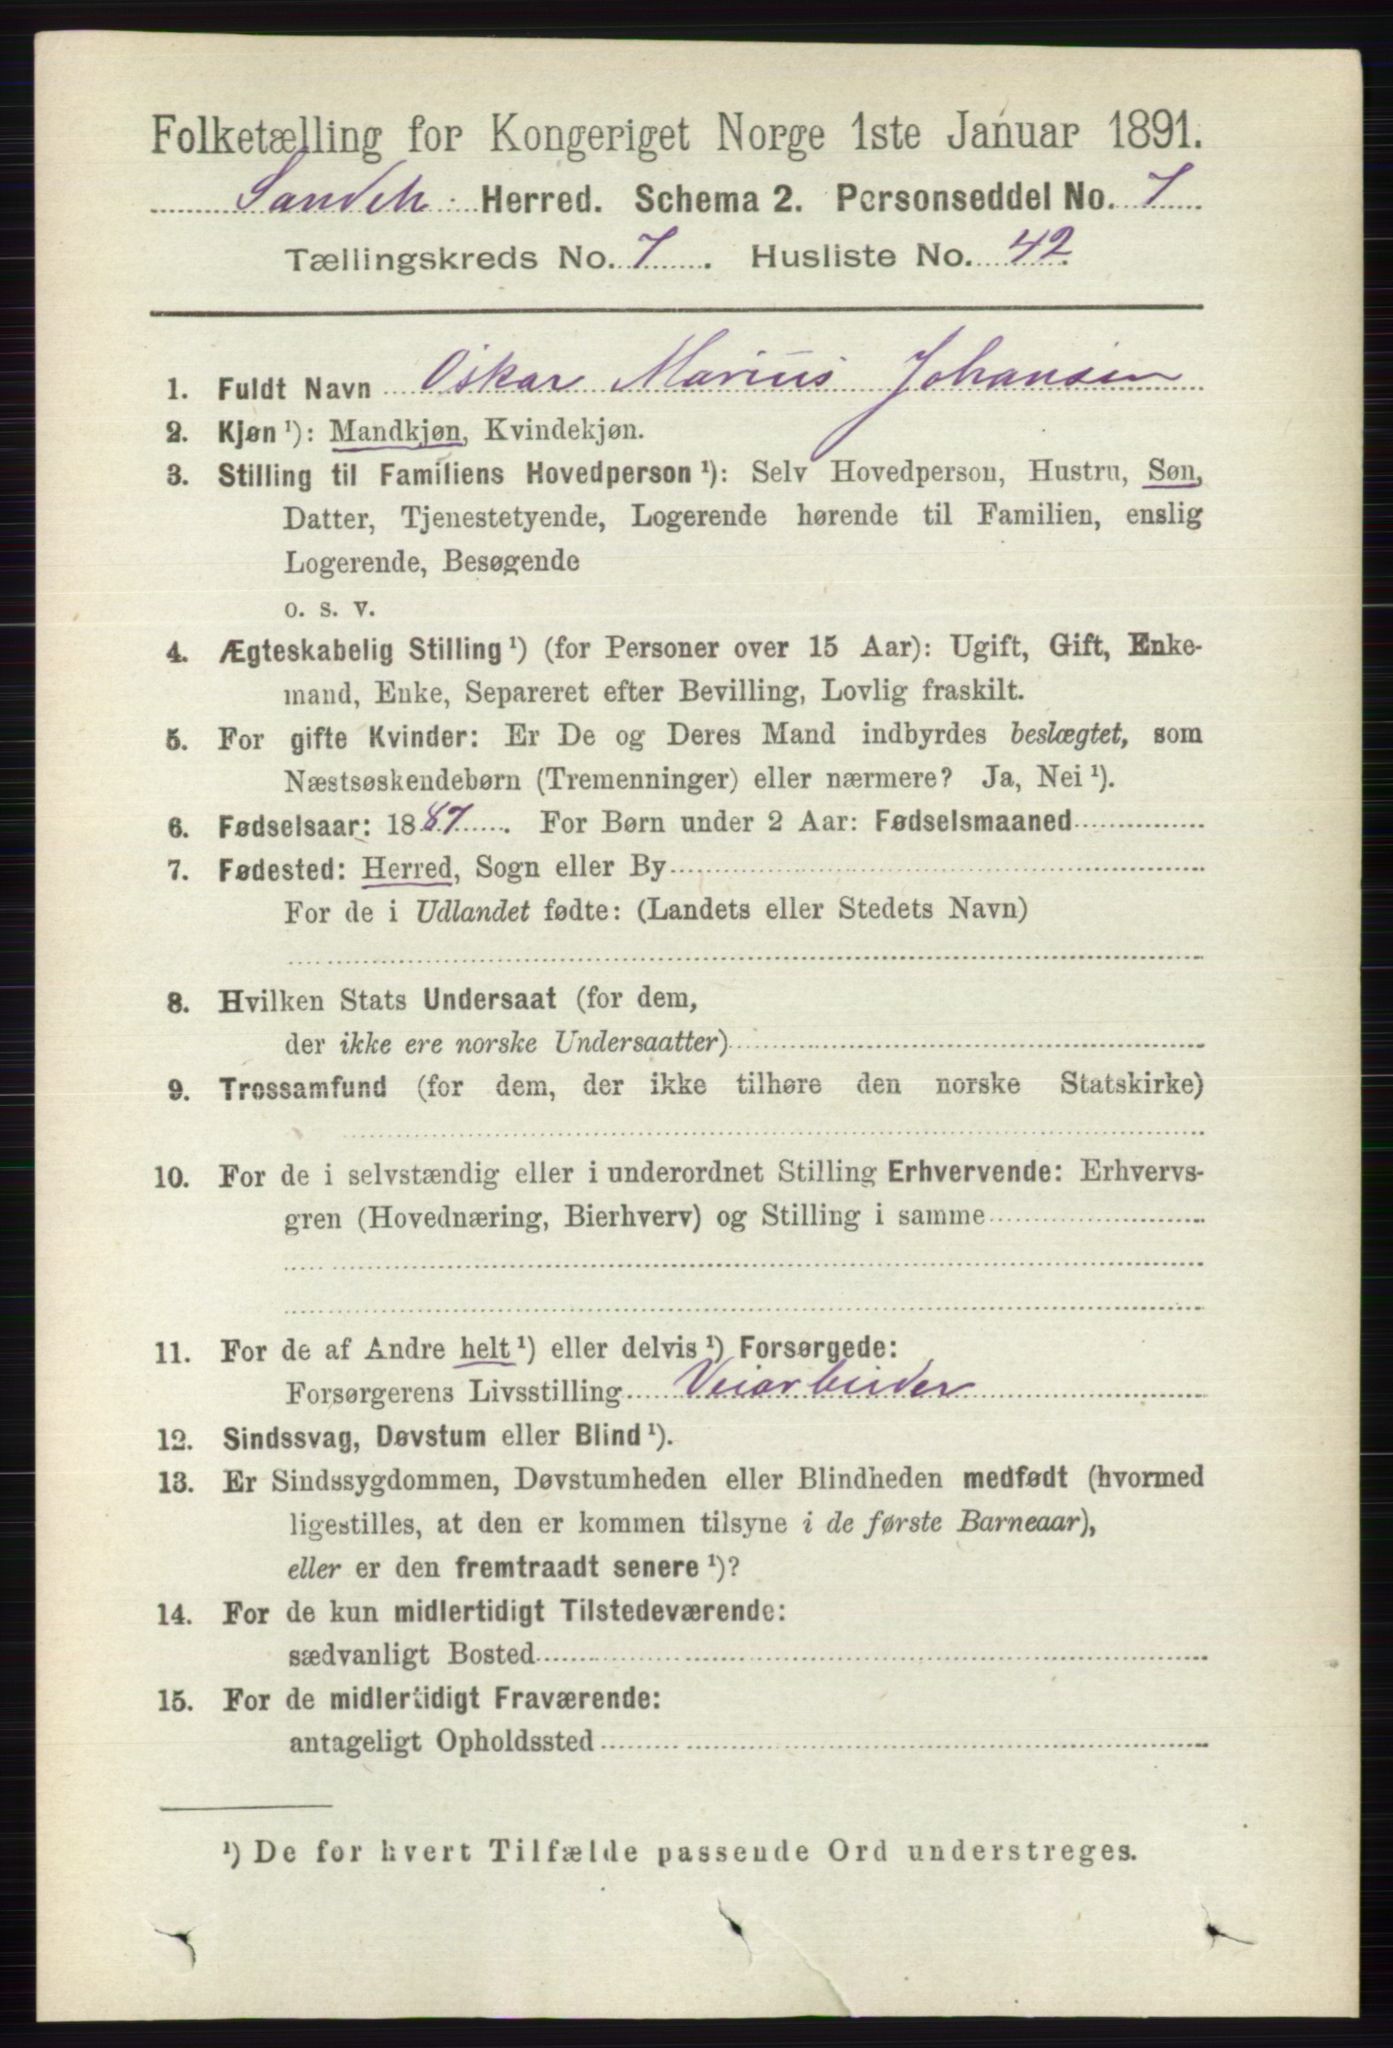 Folketælling for Kongeriget Norge 1ste Januar 1891.
Herred. Schema 2. Personseddel No. 7
Tællingskreds No. 7. Husliste No. 42
1. Fuldt Navn Oskar Marius Johansen
2. Kjøn¹): Mandkjøn, Kvindekjøn.
3. Stilling til Familiens Hovedperson¹): Selv Hovedperson, Hustru, Søn,
Datter, Tjenestetyende, Logerende hørende til Familien, enslig
Logerende, Besøgende
o. s. v.
4. Ægteskabelig Stilling¹) (for Personer over 15 Aar): Ugift, Gift, Enke-
mand, Enke, Separeret efter Bevilling, Lovlig fraskilt.
5. For gifte Kvinder: Er De og Deres Mand indbyrdes beslægtet, som
Næstsøskendebørn (Tremenninger) eller nærmere? Ja, Nei¹).
6. Fødselsaar: 1887. For Børn under 2 Aar: Fødselsmaaned
7. Fødested: Herred, Sogn eller By
For de i Udlandet fødte: (Landets eller Stedets Navn)
8. Hvilken Stats Undersaat (for dem,
der ikke ere norske Undersaatter)
9. Trossamfund (for dem, der ikke tilhøre den norske Statskirke)
10. For de i selvstændig eller i underordnet Stilling Erhvervende: Erhvervs-
gren (Hovednæring, Bierhverv) og Stilling i samme
11. For de af Andre helt¹) eller delvis¹) Forsørgede:
Forsørgerens Livsstilling Veiarbeider
12. Sindssvag, Døvstum eller Blind¹).
13. Er Sindssygdommen, Døvstumheden eller Blindheden medfødt (hvormed
ligestilles, at den er kommen tilsyne i de første Barneaar),
eller er den fremtraadt senere¹)?
14. For de kun midlertidigt Tilstedeværende:
sædvanligt Bosted
15. For de midlertidigt Fraværende:
antageligt Opholdssted
¹) De for hvert Tilfælde passende Ord understreges.